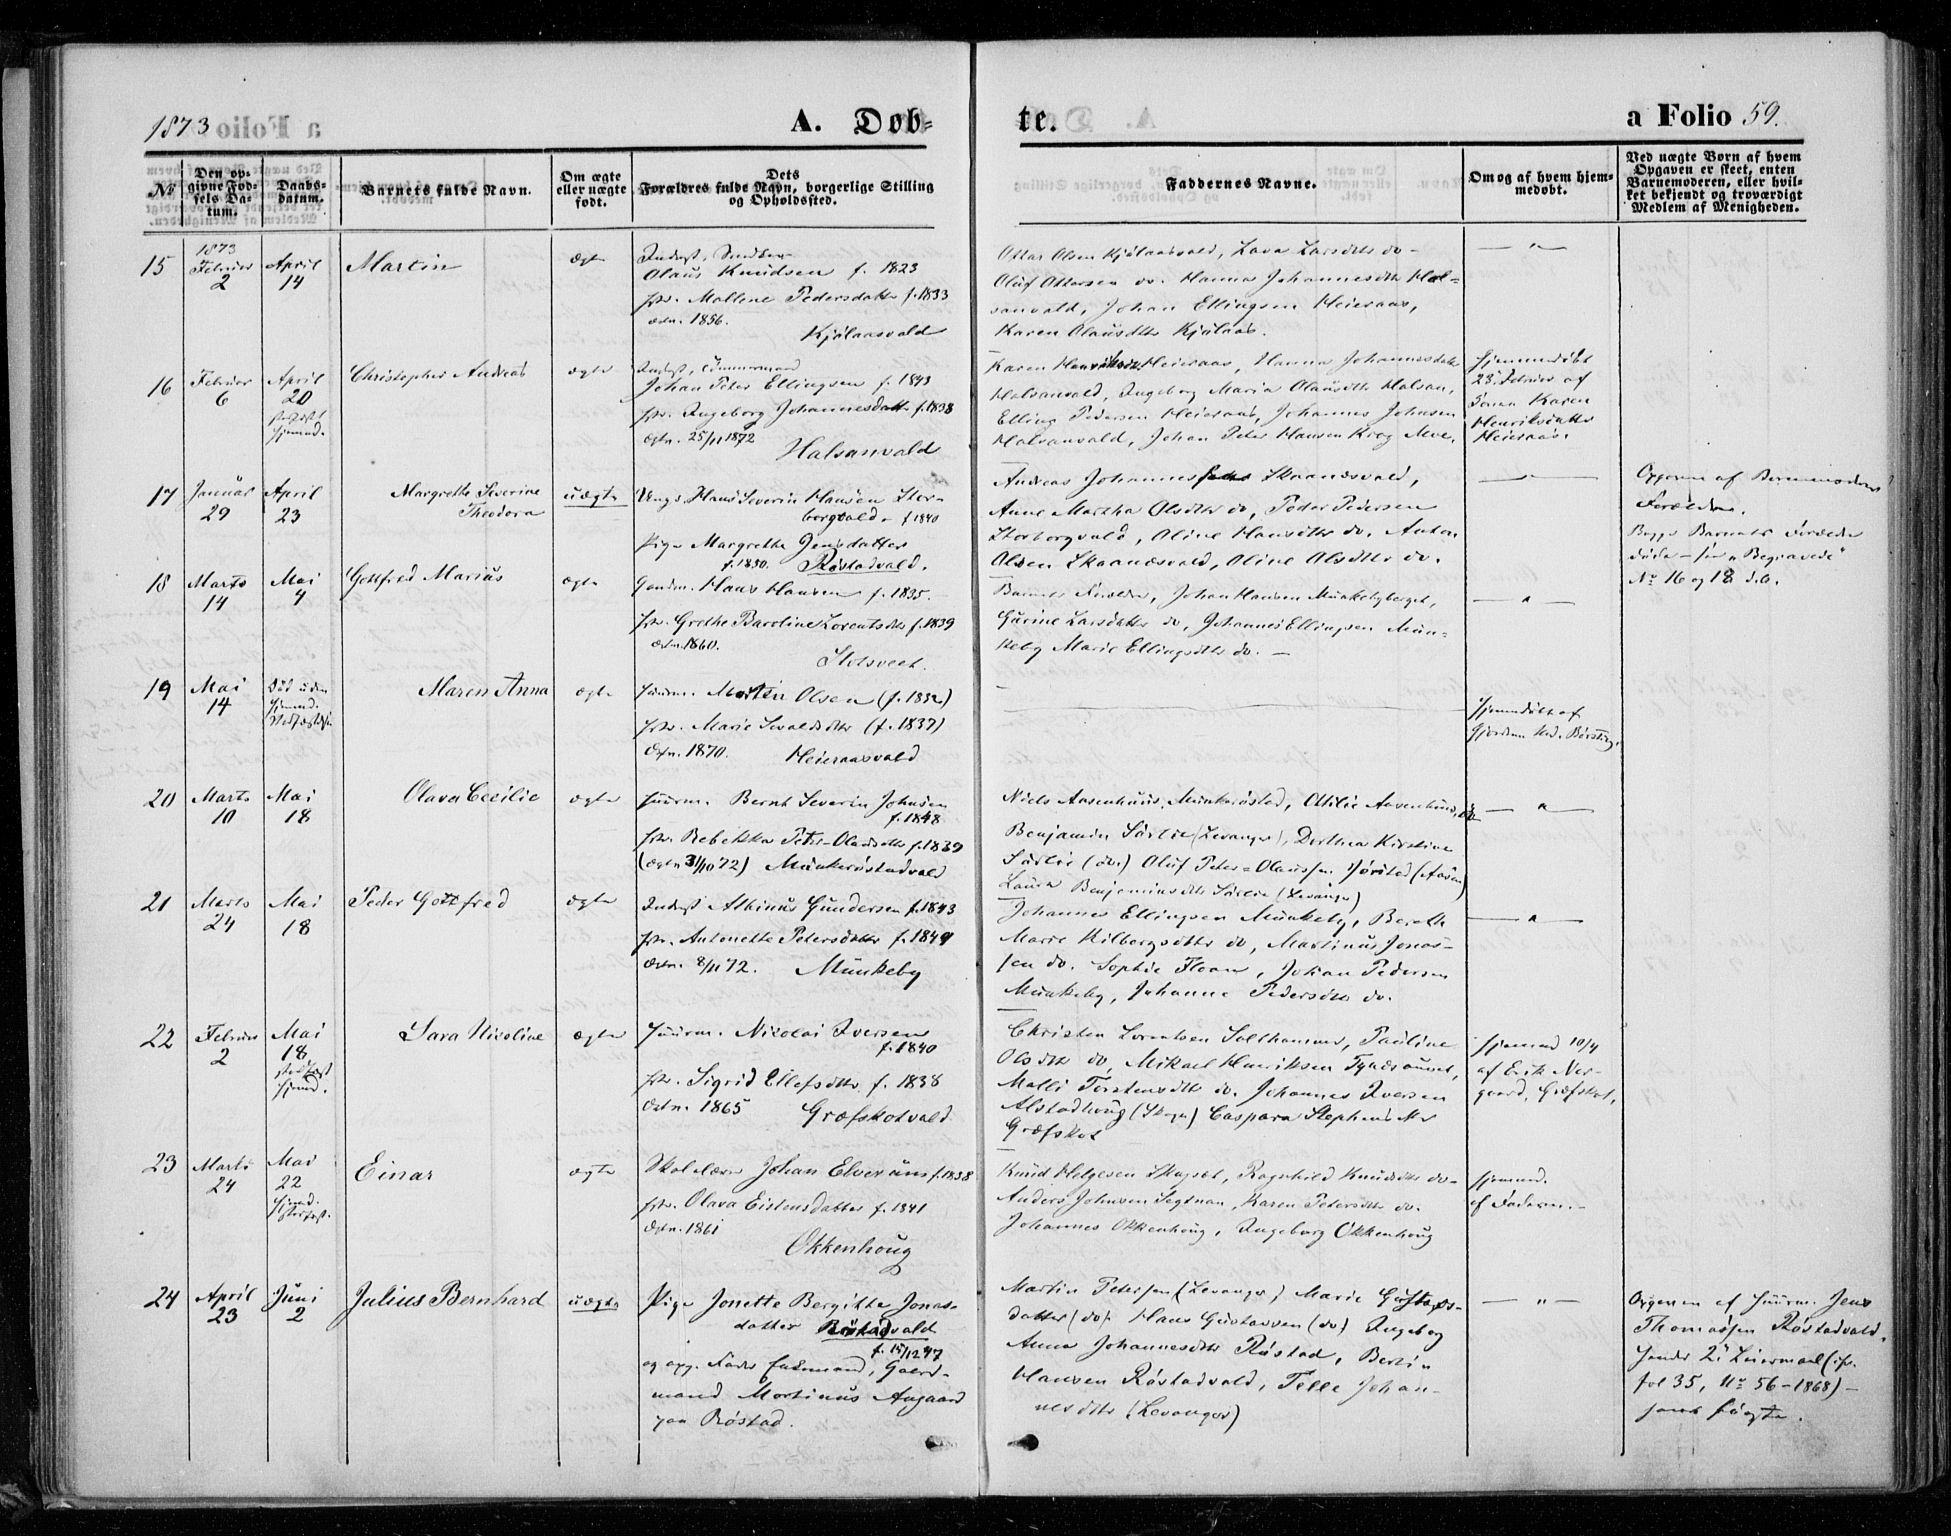 1873
A. Døb-
te.
a Folio 59.
№
Den op-
givne Fød-
sels Da-
tum.
Daabs-
datum.
Barnets fulde Navn.
Om ægte
eller uægte
født.
Dets
Forældres fulde Navn, borgerlige Stilling
og Opholdssted.
Faddernes Navne.
Om og af hvem hjem-
medøbt.
Ved uægte Børn af hvem
Opgaven er skeet, enten
Barnemoderen, eller hvil-
ket bekjendt og troværdigt
Medlem af Menigheden.
15
1873
Februar
2
April
14
Martin
ægte
Olaus Knudsen f. 1823
Hstr. Mallene Pedersdatter f. 1833
ægtv. 1856.
Kjølaasvald
Ottar Olsen Kjølaasvald, Lava Larsdttr do -
Oluf Ottersen do. Hanna Johannesdttr Hal-
sanvald, Johan Ellingsen Heieraas,
Karen Olausdttr Kjølaas.
16
Februar
6
April
20
stadfæst
hjemmd.
Christopher Andreas
ægte
Indst, Tømmermand
Johan Peter Ellingsen f. 1843
Hstr. Ingeborg Johannesdatter f. 1838
ægtv. 25/11 1872
Halsanvald
Karen Henriksdttr Heieraas, Hanna Johannesdatter
Halsanvald, Ingeborg Maria Olausdttr Halsan,
Elling Pedersen Heieraas, Johannes Johnsen
Halsanvald, Johan Peter Hansen Krog Moe.
hjemmedøbt
23 Februar af
Karen
Henriksdatter
Heieraas.
17
Januar
29
April
23
Margrethe Severine
Theodora
uægte
Ungk. Hans Severin Hansen Stor-
borgvald - f. 1840
Pige Margrethe Jensdatter
f. 1850. Røstadvald.
Andreas Johannessen Skaanesvald,
Anne Martha Olsdttr do, Peder Pedersen
Storborgvald, Oline Hansdttr do. Anton
Olsen Skaanesvald, Oline Olsdttr do.
Opgaven af Barnemoderens
Forældre.
Begge Barnets Forældre
døde - see "Begravede"
No 16 og 18 d.A.
18
Marts
14
Mai
4
Gottfred Marius
ægte
Gaardm. Hans Hansen f. 1835.
Hstr. Grethe Baroline Lorentsdttr f. 1839
ægtv. 1860.
Slotsveet.
Barnets Forældre, Johan Hansen Munkebyberget,
Gurine Larsdatter do, Johannes Ellingsen Mun-
keby Marie Ellingsdttr do. -
19
Mai
14
Død uden
hjemmd.
Stadfæstelse
Maren Anna
ægte
Huusm. Martin Olsen (f. 1832)
Hstr. Marie Sevaldsdttr (f. 1837)
ægtv. 1870. Heieraasvald
hjemmedøbt af
20
Marts
10
Mai
18
Olava Cecilie
ægte
Huusm. Bernt Severin Johnsen
f. 1848
Hstr. Rebekka Peter-Olausdttr f. 1839
(ægtv. 31/10 72) Munkerøstadvald
Niels Aasenhuus, Munkerøstad, Otilie Aasenhuus, do
Benjamin Sørlie (Levanger), Dorthea Kirstine
Sørlie (do.) Oluf Peter-Olaussen Hjørstad (Aasen)
Laura Benjaminsdttr Sørlie (Levanger)
21
Marts
24
Mai
18
Peder Gottfred
ægte
Inderst Albinus Gundersen f. 1843
Hstr. Antonette Petersdatter f. 1849
ægtv. 8/11 72. Munkeby
Johannes Ellingsen Munkeby, Bereth
Marie Kilbergsdttr do, Martinus Jonas-
sen do. Sophie Floan, Johan Pedersen
Munkeby, Johanne Pedersdttr do.
22
Februar
2
Mai
18
stadfæst
hjemmd.
Sara Nicoline
ægte
Huusm. Nicolai Iversen
f. 1840
Hstr. Sigrid Ellefsdttr f. 1838
ægtv. 1865 Græfskotvald
Christen Lorentsen Salthammer, Pauline
Olsdttr do, Mikael Henriksen Tynesaunet,
Malli Torstensdttr do. Johannes Iversen
Alstadhoug (Skogn) Caspara Stephensdttr
Græfskot
hjemmd 10/4
af Erik Ner-
gaard, Græfskot,
23
Marts
24
Mai
22
hjemmd.
stadfæst.
Einar
ægte
Skolelærer Johan Elverum f. 1838
Hstr. Olava Eistensdatter f. 1841
ægtv. 1861
Okkenhoug
Knud Helgesen Skogset, Ragnhild Knudsdttr do-
Anders Johnsen Segtnan, Karen Petersdttr do.
Johannes Okkenhoug, Ingeborg Okkenhoug
hjemmd.
af Faderen.-
24
April
23
Juni
2
Julius Bernhard
uægte
Pige Jonette Bergitte Jonas-
datter Røstadvald
f. 15/12 47
og opg. Fader Enkemand, Gaard-
mand Martinus Augaard
paa Røstad.
Martin Petersen (Levanger) Marie Gustavs-
datter (do). Hans Gustavsen (do) Ingeborg
Anna Johannesdttr Røstad, Berzin
Hansen Røstadvald, Telle Johan-
nesdttr (Levanger)
Opgaven af Huusm. Jens
Thomassen Røstadvald,
hendes 2. Leiermaal (cfr.
fol 35, No 56 - 1868) -